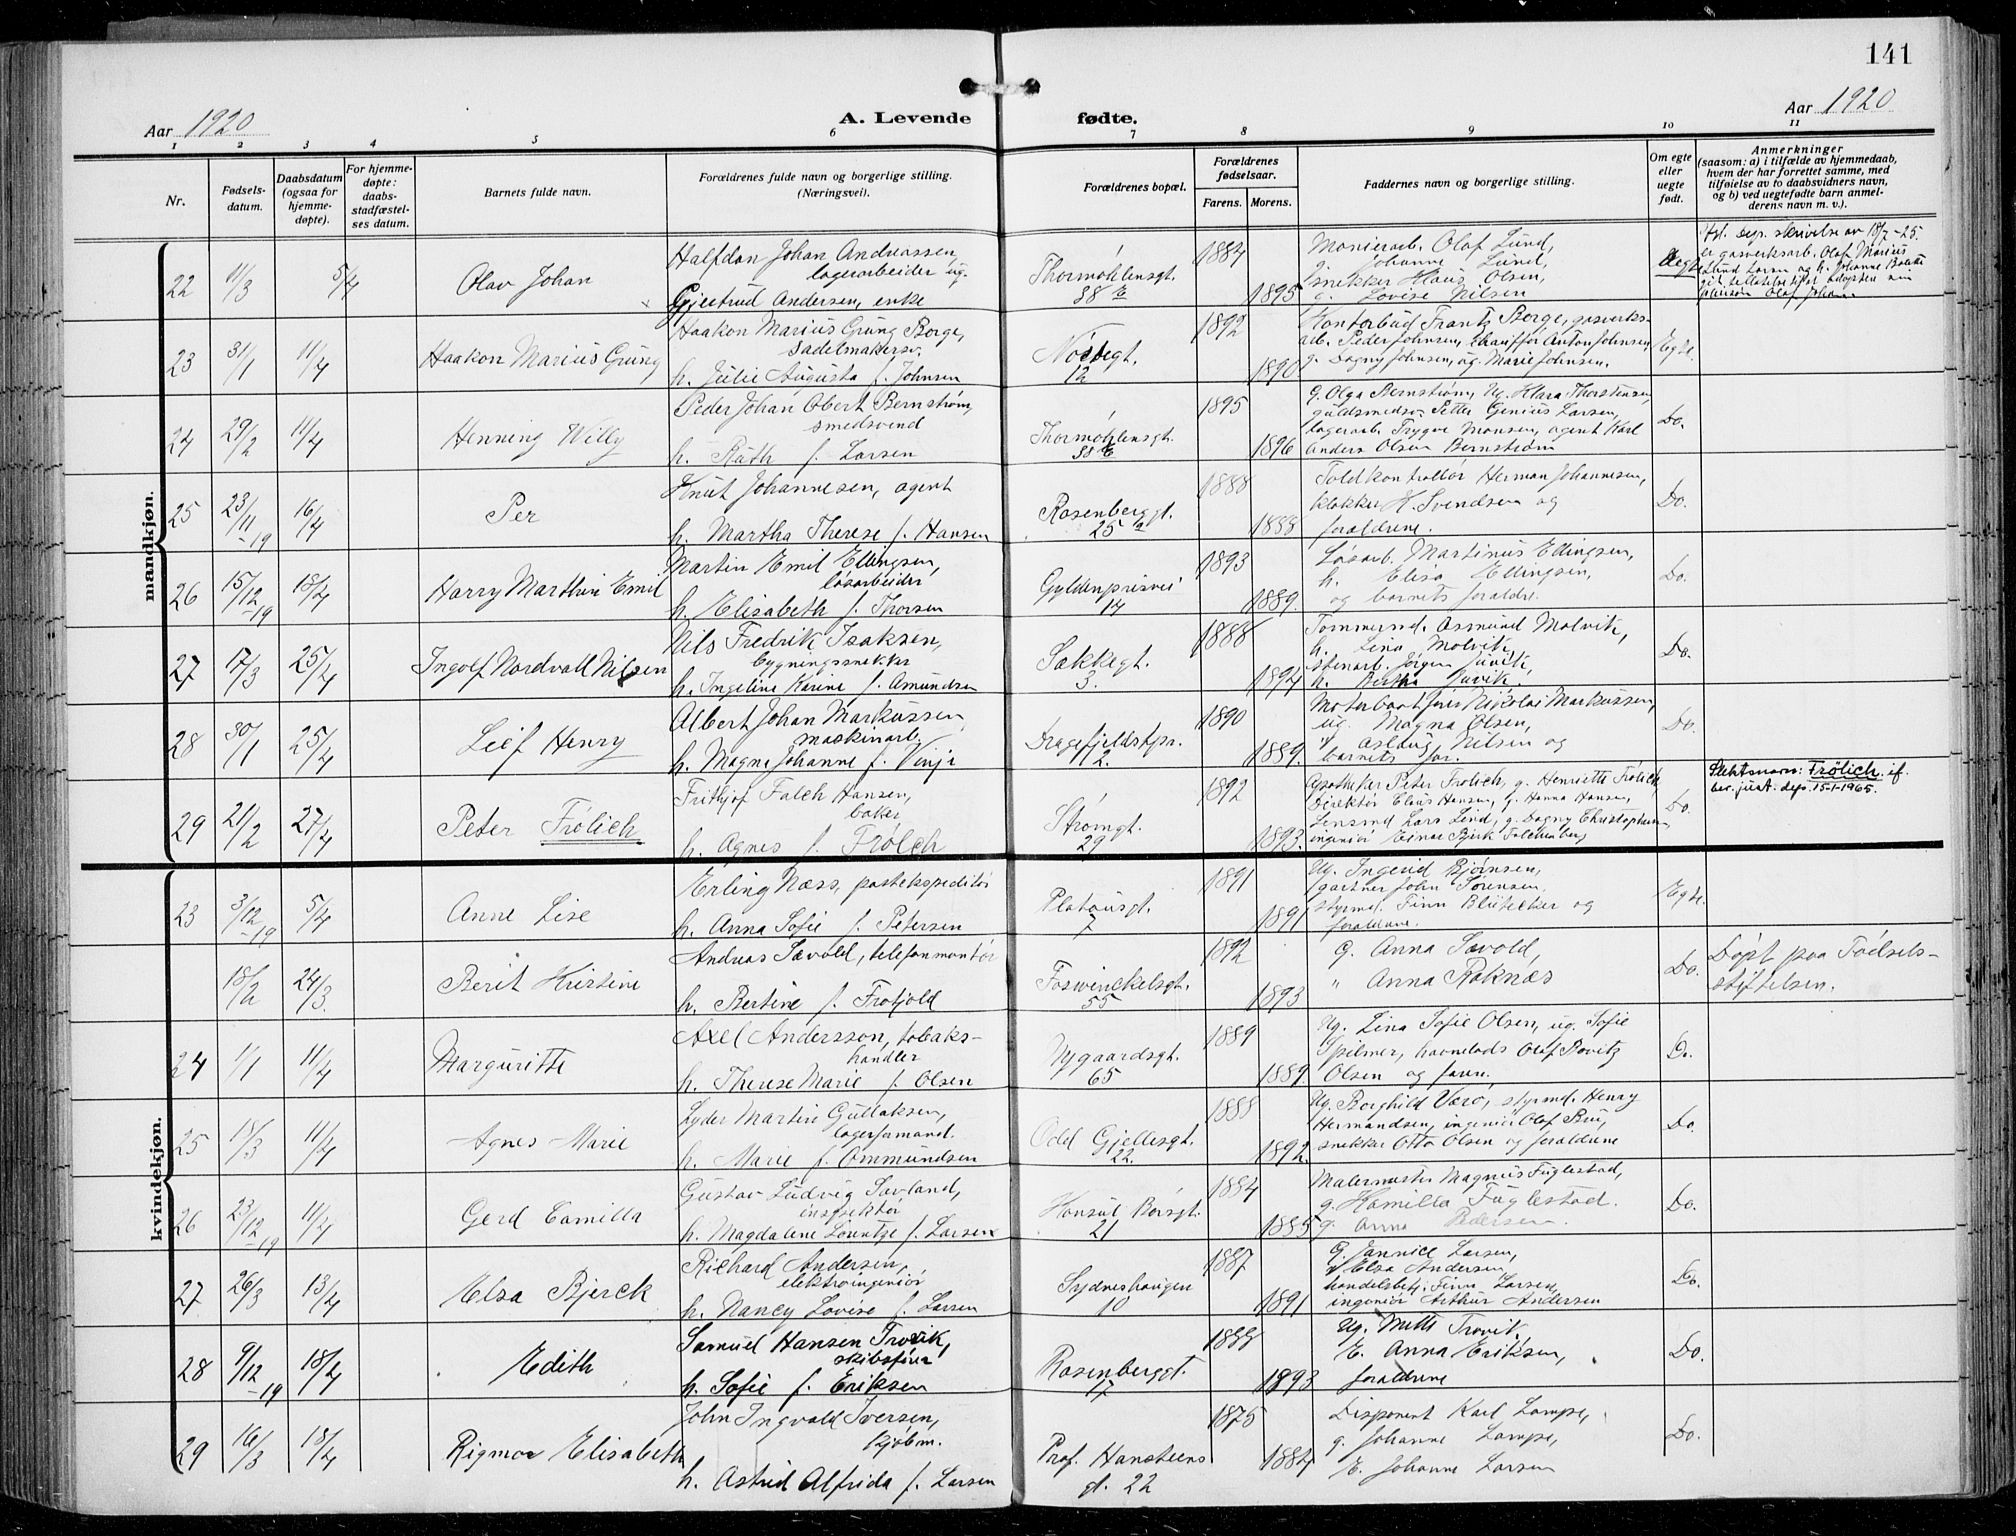 141
Aar 1920
A. Levende fødte.
Aar 1920
1 2 3 4 5 6 7 8 9 10 11
Nr.
Fødsels-
datum.
Daabsdatum
(ogsaa for
hjemme-
døpte).
For hjemme-
døpte:
daabs-
stadfæstel-
ses datum.
Barnets fulde navn.
Forældrenes fulde navn og borgerlige stilling.
(Næringsvei).
Forældrenes bopæl.
Forældrenes
fødselsaar.
Farens. Morens.
Faddernes navn og borgerlige stilling.
Om egte
eller
uegte
født.
Anmerkninger
(saasom: a) i tilfælde av hjemmedaab,
hvem der har forrettet samme, med
tilføielse av to daabsvidners navn,
og b) ved uegtefødte barn anmel-
derens navn m. v.).
mandkjøn.
22 11/3 5/4 Olav Johan
Halfdan Johan Andreassen,
lagerarbeider ug.
Gjestrud Andersen, enke
Thormøhlensgt.
38 E
1884 1895
Murerarb. Olaf Lund,
Johanne Lund,
snekker Klaus Olsen,
g. Lovise Nilsen
Uegte
skrivelse av 18/7-25
er gasverksarb. Olaf Marius
Lund Larsen og h. Johanne
git tillatelse til at adoptere sin
Olaf Johan
23 31/1 11/4 Haakon Marius Grung
Haakon Marius Grung Borge,
sadelmakersv.
h. Julie Augusta f. Johnsen
Nøstegt.
12
1892 1890
Kontorbud Frantz Borge, gasverks-
arb. Peder Johnsen, chauffør Anton Johnsen,
g. Dagny Johnsen, ug. Marie Johnsen.
Egte.
24 29/2 11/4 Henning Willy
Peder Johan Obert Bernstrøm,
smedsvend
h. Ruth f. Larsen
Thormøhlensgt.
38 E
1895 1896
g. Olga Bernstrøm, ug. Klara Thorstensen,
guldsmedsv. Petter Genius Larsen,
lagerarb. Trygve Monsen, agent Karl
Anders Olsen Bernstrøm
Do.
25 23/11-19 16/4 Per
Knut Johannesen, agent
h. Martha Therese f. Hansen
Rosenberggt.
25 a
1888 1888
Toldkontrollør Herman Johannesen,
klokker H. Svendsen og
forældrene.
Do.
26 15/12-19 18/4 Harry Marthin Emil
Martin Emil Ellingsen,
løsarbeider
h. Elisabeth f. Thorsen
Gyldenprisvei
14
1893 1889.
Løsarb. Martinus Ellingsen,
h. Elisa Ellingsen,
og barnets forældre.
Do.
27 17/3 25/4 Ingolf Nordvall Nilsen
Nils Fredrik Isaksen,
bygningssnekker
h. Ingeline Karine f. Amundsen
Sækkegt.
3.
1888 1894
Tømmersnd. Asmund Molvik,
h. Lina Molvik,
stenarb. Jørgen Juvik,
h. Bertha Juvik.
Do.
28 30/1 25/4 Leif Henry
Albert Johan Markussen,
maskinarb.
h. Magna Johanne f. Vinje
Dragefjeldstpr.
12.
1890 1889.
Motorbaatfører Nikolai Markussen,
ug. Magna Olsen,
Aslaug Nilsen og
barnets far.
Do.
29 21/2 27/4 Peter Frölich
Frithjof Falch Hansen,
baker
h. Agnes f. Frölich
Strømgt.
29
1892 1893.
Apotheker Peter Frölich, g. Henriette Frölich,
Direktør Claus Hansen, g. Hanna Hansen,
Lensmd. Lars Lind, g. Dagny Christophersen,
ingeniør Einar Bjerk Falchenberg
Do.
Slektsnavn: Frölich if.
ber. just. dep. 15-1-1965.
kvindekjøn.
23 3/12-19 5/4 Anne Lise
Erling Næss, postekspeditør
h. Anna Sofie f. Petersen
Platousgt.
7
1891 1891
Ug. Ingerid Bjørnsen,
gartner John Sørensen,
styrmd. Finn Blütecker og
forældrene.
Egte.
18/2 24/3. Berit Kristine
Andreas Sævold, telefonmontør
h. Bertine f. Frotjold
Foswinckelsgt.
55
1892 1893
G. Anna Sævold,
" Anna Røknæs
Do.
Døpt paa Fødsels-
stiftelsen.
24 1/1 11/4 Marguritte
Axel Andersson, tobaks-
handler
h. Therese Marie f. Olsen
Nygaardsgt.
65
1889 1889.
Ug. Lina Sofie Olsen, ug. Sofie
Spilmer, havnelods Olaf Rovitz
Olsen og faren.
Do.
25 18/3 11/4 Agnes Marie
Lyder Martin Gullaksen,
lagerformand.
h. Marie f. Ommundsen
Odd Gjellesgt.
22.
1888 1892.
Ug. Borghild Værø, styrmd. Henry
Hermandsen, ingeniør Olaf Bru,
snekker Otto Olsen og forældrene
Do.
26 23/12-19 11/4 Gerd Camilla
Gustav Ludvig Søvland,
inspektør
h. Magdalene Lountze f. Larsen
Konsul Børsgt.
21
1884 1885
Malermester Magnus Fuglestad,
g. Kamilla Fuglestad.
g. Anna Pedersen.
Do.
27 26/3 13/4 Elsa Bjerck
Richard Andersen,
elektroingeniør
h. Nancy Lovise f. Larsen
Sydneshaugen
10
1887 1891
G. Jannice Larsen,
Elsa Andersen,
handelsbetj. Finn Larsen,
ingeniør Arthur Andersen
Do.
28 9/12-19 18/4 Edith
Samuel Hansen Trovik,
skibsfører
h. Sofie f. Eriksen
Rosenberggt.
17
1888 1893
Ug. Mette Trovik,
E. Anna Eriksen,
forældrene
Do.
29 16/3 18/4 Rigmor Elisabeth
John Ingvald Iversen,
kjøbm.
h. Astrid Alfrida f. Larsen
Prof. Hansteens
gt. 22
1875 1884
Disponent Karl Lampe,
g. Johanne Lampe,
E. Johanne Larsen
Do.